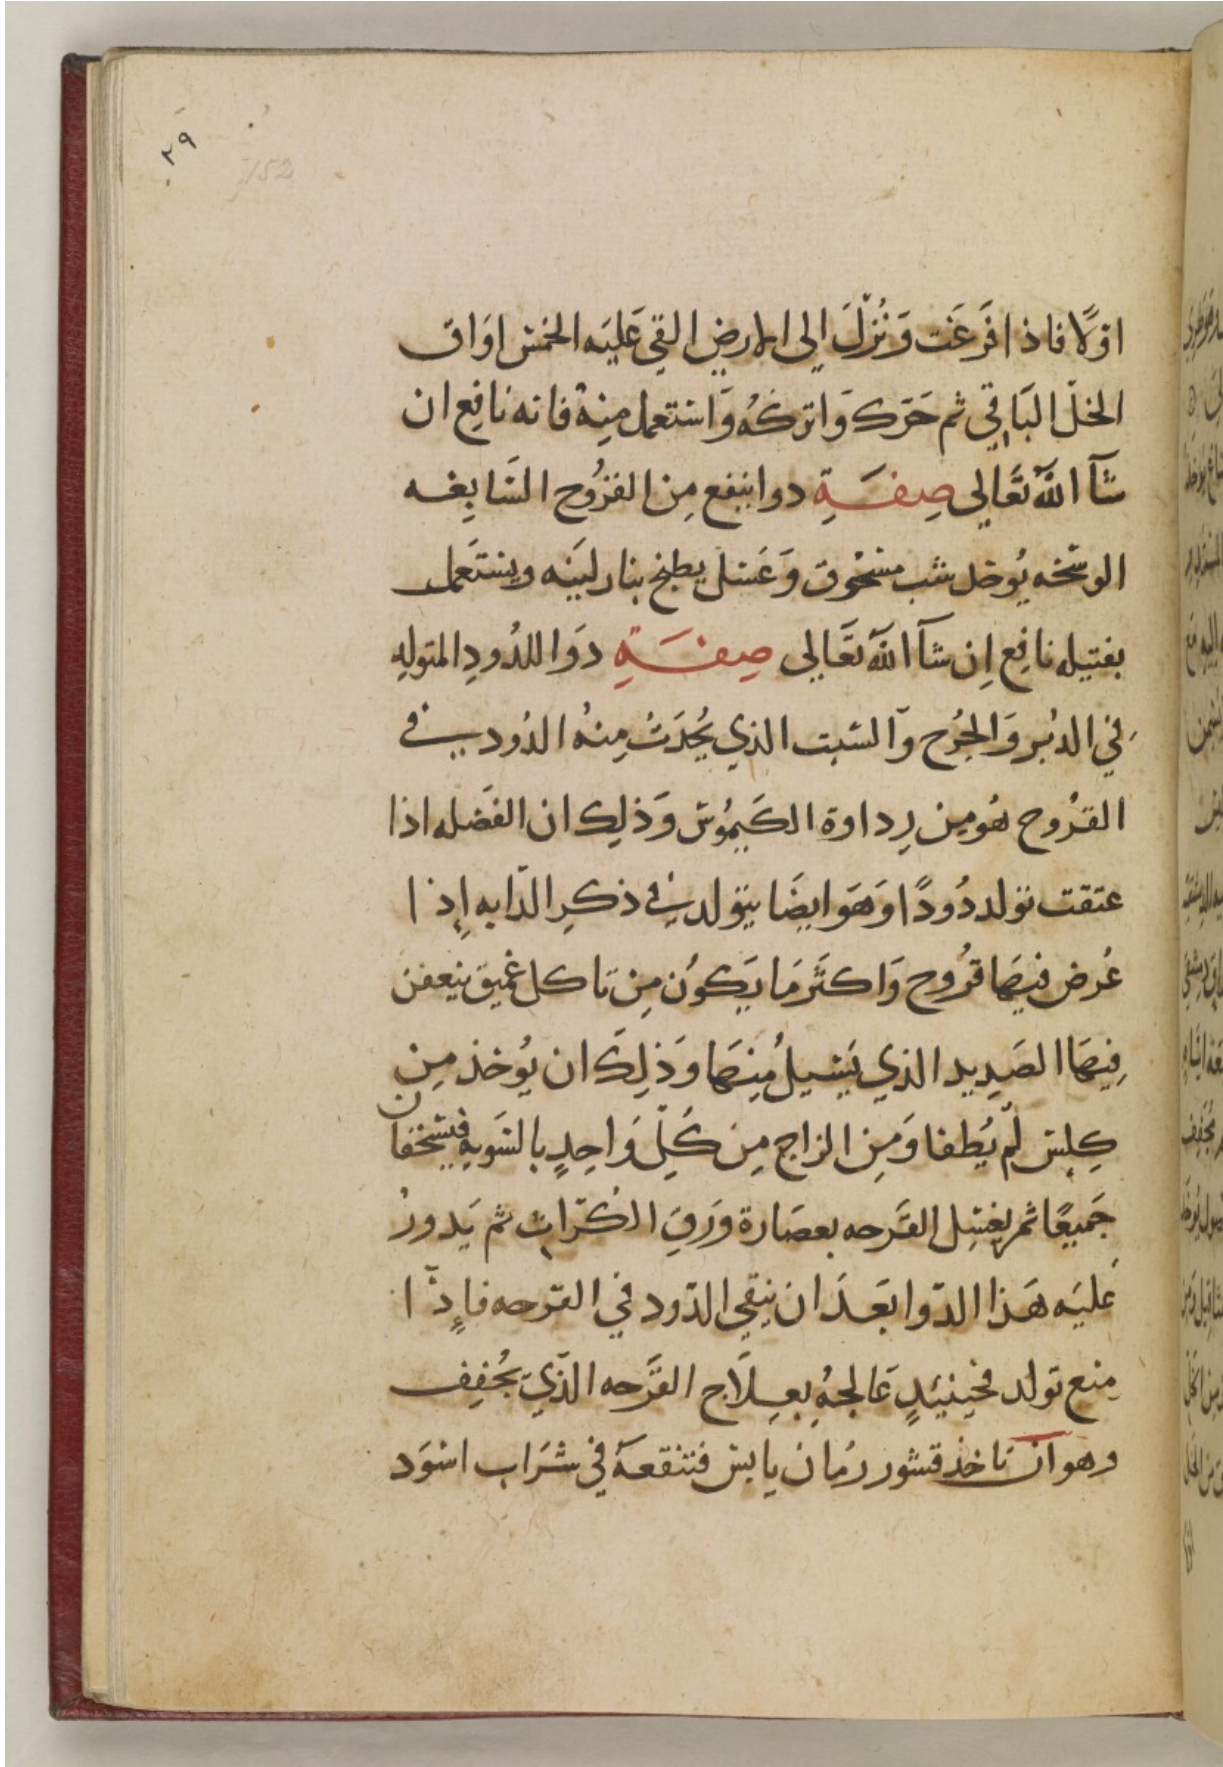 ٢٩
752
اوّلًا فاذا فَرَغَت وَنُزّلَ الي الارض القي عَليَه الخمسْ اوَاق
الخلّ البَاقي ثم حَرّك وَاترَكهُ وَاسْتعمل مِنهْ فانه نافِع ان
شآ اللّه تَعَالي صِفَـةِ دوا ينفع مِن القرُوح السَّايعْـه
الوسَخه يُوخد شب مسْحُوق وَعَسَل يطبخ بنار ليَنه ويسْتَعمل
بفتيله نافِع اِن شآ اللّه تَعَالي صِفَـةِ دَوَا للدُودِ المتولدِ
في الدبُر وَالجرُح وَالسّبَب الذي يُحدَثُ مِنهُ الدُود في
القرُوح هُو مِن رِداوة الكَيمُوسْ وَذلِك ان الفَضله اذا
عتقت تولد دُودًا وَهَو ايضَا يتوَلد في ذكرِ الدّابه اِذا
عُرض فيهَا قرُوح وَاكثَر مَا يَكوُن مِن تاكل غميق يَتعفن
فِيهَا الصَدِيد الذي يَسيلُ مِنهَا وَذلِكَ ان يُوخذ مِن
كِلسْ لَم يُطفا وَمِن الزاج مِن كُلِّ وَاحِدٍ بالسَويهِ فيسْحَقان
جَميعًا ثم يغسِل القَرحه بعصَارة ورَقِ الكرّاث ثم يَدورُ
عَليَه هَذا الدّوا بَعَـدَ ان يَنقي الدّود في القرحه فاِذَا
مِنع تولد فحِينئِدٍ عَالجهُ بعِـلَاج القرَحه الذّي يجُفِف
وهو ان تاخذ قشور رمُان يابسْ فتنقعـهَ في شَرَاب اسْوَد